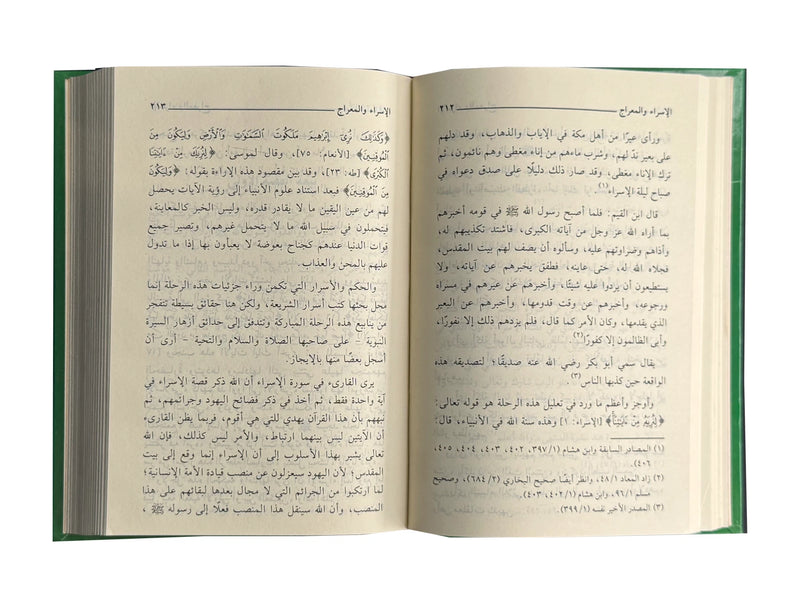 الإسراء والمعراج ٢١٢
ورأى عيرًا من أهل مكة في الإياب والذهاب، وقد دلهم
على بعير ندّ لهم، وشرب ماءهم من إناء مغطى وهم نائمون، ثم
ترك الإناء مغطى، وقد صار ذلك دليلًا على صدق دعواه في
صباح ليلة الإسراء(١).
قال ابن القيم: فلما أصبح رسول الله ﷺ في قومه أخبرهم
بما أراه الله عز وجل من آياته الكبرى، فاشتد تكذيبهم له،
وأذاهم وضراوتهم عليه، وسألوه أن يصف لهم بيت المقدس،
فجلاه الله له، حتى عاينه، فطفق يخبرهم عن آياته، ولا
يستطيعون أن يردوا عليه شيئًا، وأخبرهم عن عيرهم في مسراه
ورجوعه، وأخبرهم عن وقت قدومها، وأخبرهم عن البعير
الذي يقدمها، وكان الأمر كما قال، فلم يزدهم ذلك إلا نفورًا،
وأبى الظالمون إلا كفورًا(٢).
يقال سمي أبو بكر رضي الله عنه صديقًا؛ لتصديقه هذه
الواقعة حين كذبها الناس(٣).
وأوجز وأعظم ما ورد في تعليل هذه الرحلة هو قوله تعالى:
﴿لِنُرِيَهُۥ مِنْ ءَايَٰتِنَا﴾ [الإسراء: ١] وهذه سنة الله في الأنبياء، قال:
(١) المصادر السابقة وابن هشام (١/ ٣٩٧، ٤٠٢، ٤٠٣، ٤٠٤، ٤٠٥،
٤٠٦).
(٢) زاد المعاد ١/ ٤٨، وانظر أيضًا صحيح البخاري (٢/ ٦٨٤)، وصحيح
مسلم ١/ ٩٦، وابن هشام (١/ ٤٠٢، ٤٠٣).
(٣) المصدر الأخير نفسه (١/ ٣٩٩)
الإسراء والمعراج ٢١٣
﴿وَكَذَٰلِكَ نُرِيٓ إِبْرَٰهِيمَ مَلَكُوتَ ٱلسَّمَٰوَٰتِ وَٱلْأَرْضِ وَلِيَكُونَ مِنَ
ٱلْمُوقِنِينَ﴾ [الأنعام: ٧٥]، وقال لموسى: ﴿لِنُرِيَكَ مِنْ ءَايَٰتِنَا
ٱلْكُبْرَى﴾ [طه: ٢٣]، وقد بين مقصود هذه الإراءة بقوله: ﴿وَلِيَكُونَ
مِنَ ٱلْمُوقِنِينَ﴾ فبعد استناد علوم الأنبياء إلى رؤية الآيات يحصل
لهم من عين اليقين ما لا يقادر قدره، وليس الخبر كالمعاينة،
فيتحملون في سبيل الله ما لا يتحمل غيرهم، وتصير جميع
قوات الدنيا عندهم كجناح بعوضة لا يعبأون بها إذا ما تدول
عليهم بالمحن والعذاب.
والحكم والأسرار التي تكمن وراء جزئيات هذه الرحلة إنما
محل بحثها كتب أسرار الشريعة، ولكن هنا حقائق بسيطة تتفجر
من ينابيع هذه الرحلة المباركة وتتدفق إلى حدائق أزهار السيرة
النبوية – على صاحبها الصلاة والسلام والتحية – أرى أن
أسجل بعضًا منها بالإيجاز.
يرى القارىء في سورة الإسراء أن الله ذكر قصة الإسراء في
آية واحدة فقط، ثم أخذ في ذكر فضائح اليهود وجرائمهم، ثم
نبههم بأن هذا القرآن يهدي للتي هي أقوم، فربما يظن القارىء
أن الآيتين ليس بينهما ارتباط، والأمر ليس كذلك، فإن الله
تعالى يشير بهذا الأسلوب إلى أن الإسراء إنما وقع إلى بيت
المقدس؛ لأن اليهود سيعزلون عن منصب قيادة الأمة الإنسانية؛
لما ارتكبوا من الجرائم التي لا مجال بعدها لبقائهم على هذا
المنصب، وأن الله سينقل هذا المنصب فعلًا إلى رسوله ﷺ،